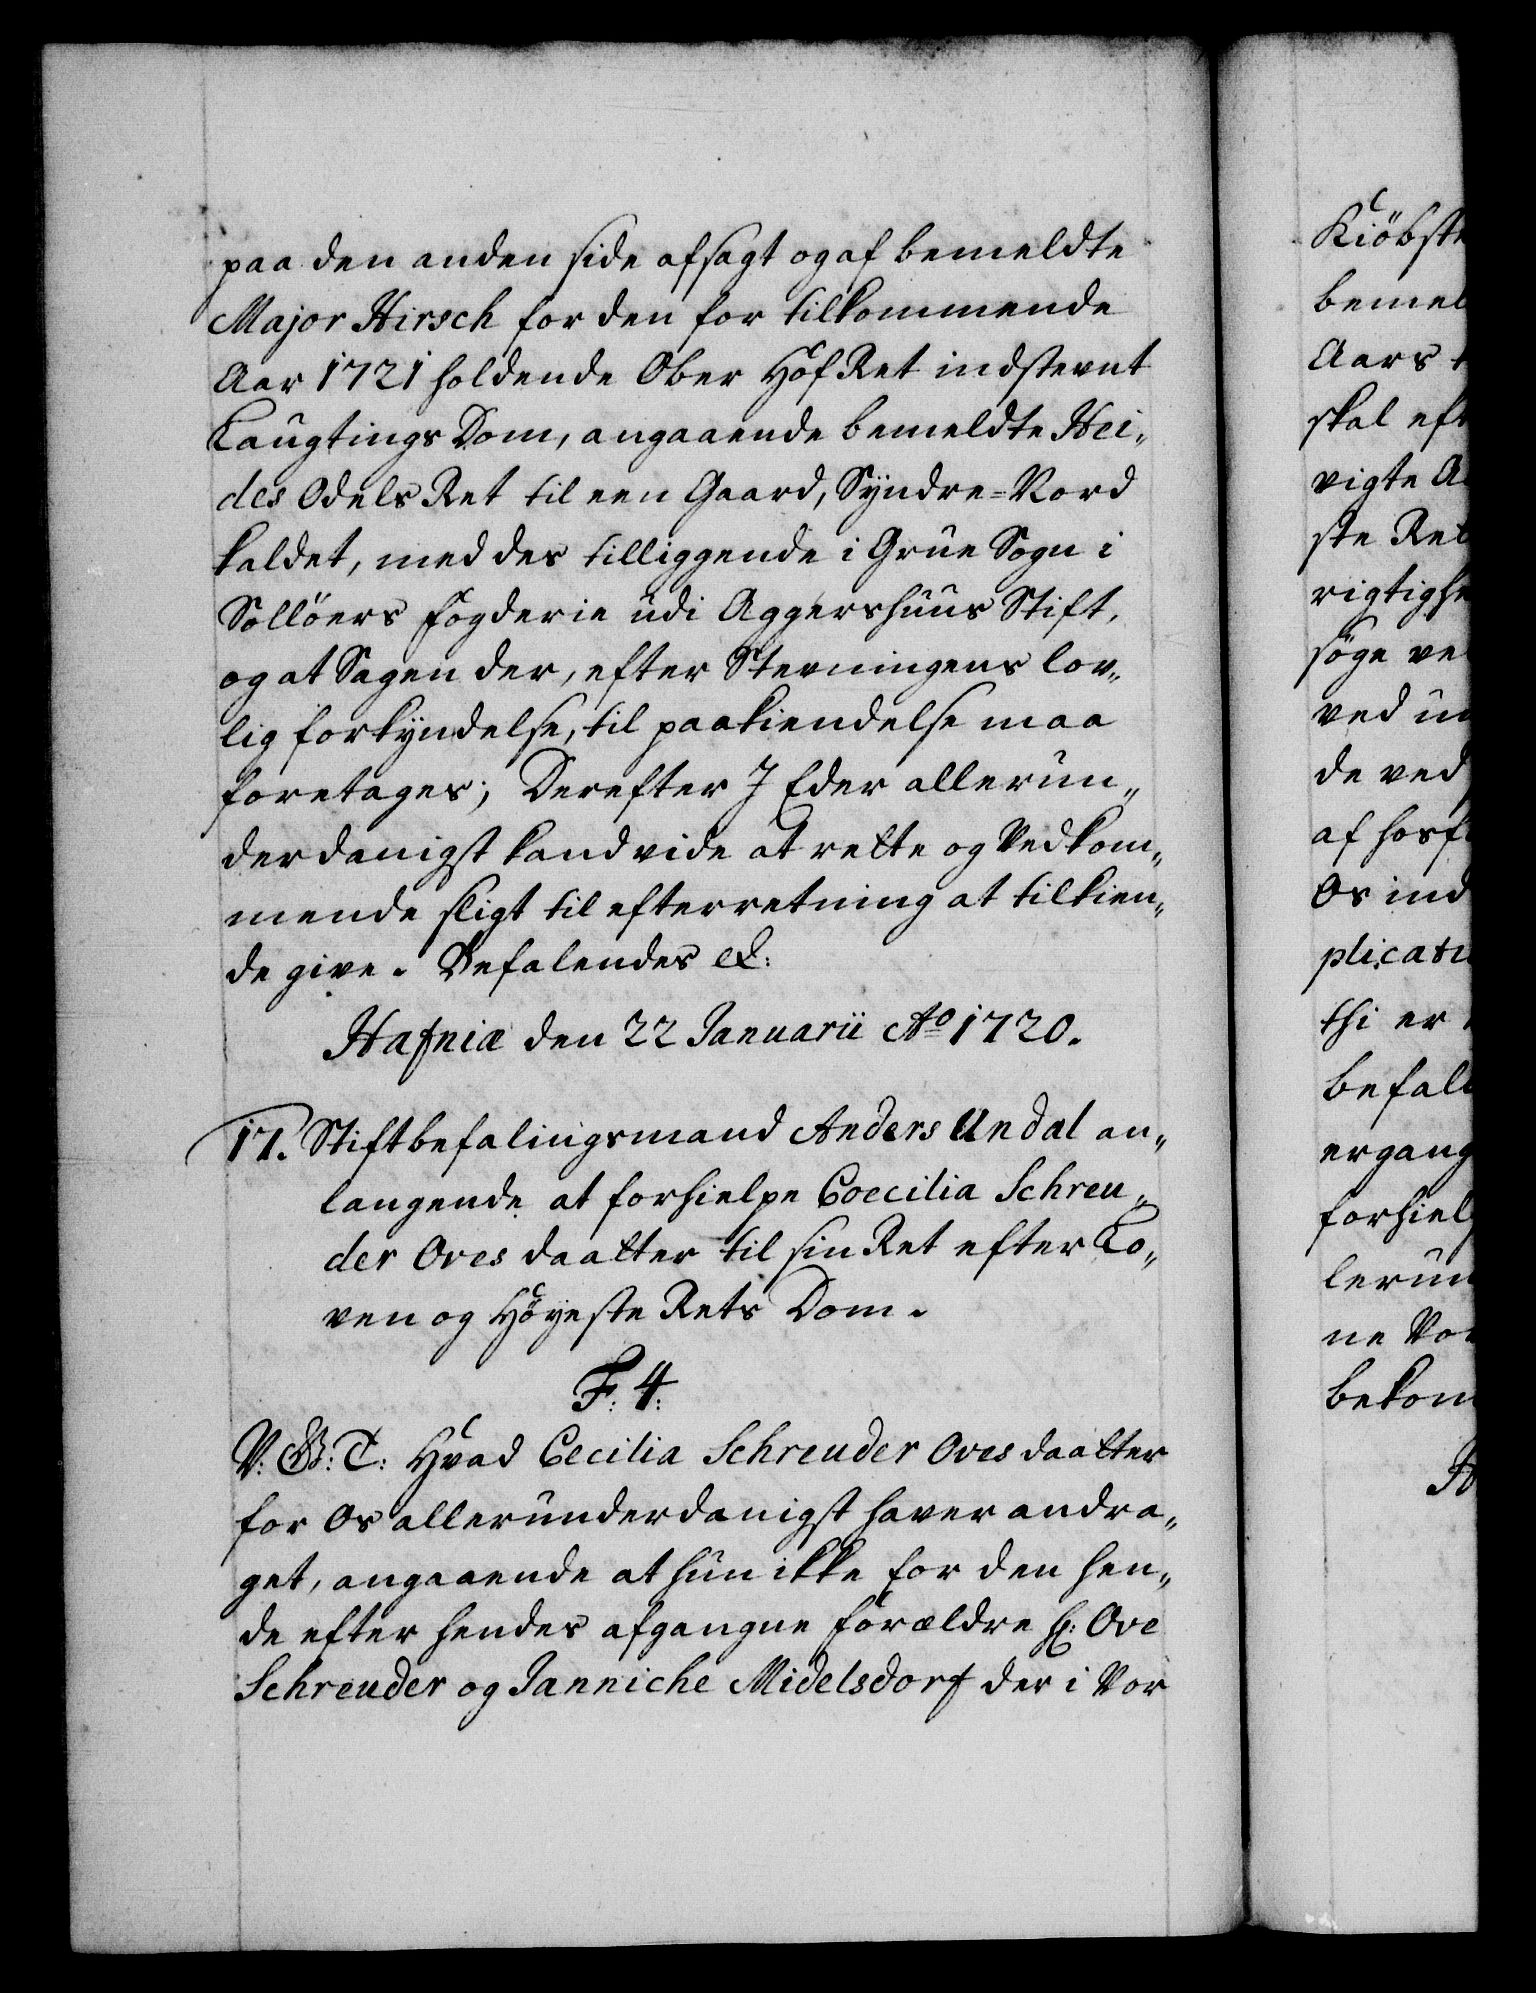 paa den anden side afsagt og af bemeldte
Major Hirsch for den for tilkommende
Aar 1721 holdende Ober Hof Ret indstevnt
Laugtings Dom, angaaende bemeldte Hei„
des Odels Ret til een Gaard, Syndre=Nord
kaldet, med des tilliggende i Grue Sogn i
Sollöers Fogderie udi Aggershuus Stift,
og at Sagen der, efter Stevningens lov„
lig forkyndelse, til paakiendelse maa
foretages; Derefter I Eder allerun„
derdanigst kand vide at rette og Vedkom„
mende sligt til efterretning at tilkien„
de give. Befalendes etc:
Hafniæ den 22 Januarii Ao 1720.
17. Stiftbefalingsmand Anders Undal an„
langende at forhielpe Coecilia Schreu„
der Oves daatter til sin Ret efter Lo„
ven og Höyeste Rets Dom.
F: 4:
V: G: T: Hvad Cecilia Schreuder Oves daatter
for Os allerunderdanigst haver andra„
get, angaaende at hun ikke for den hen„
de efter hendes afgangne Forældre Hr: Ove
Schreuder og Janniche Midelsdorf der i Vor
Kiöbste
bemel
Aars
skal eft
vigte A
ste Ret
rigtighe
söge ve
ved un
de ved
af hosf
Os ind
plicatu
thi er
befale
ergang
forhiel
lerun
ne Vor
bekom